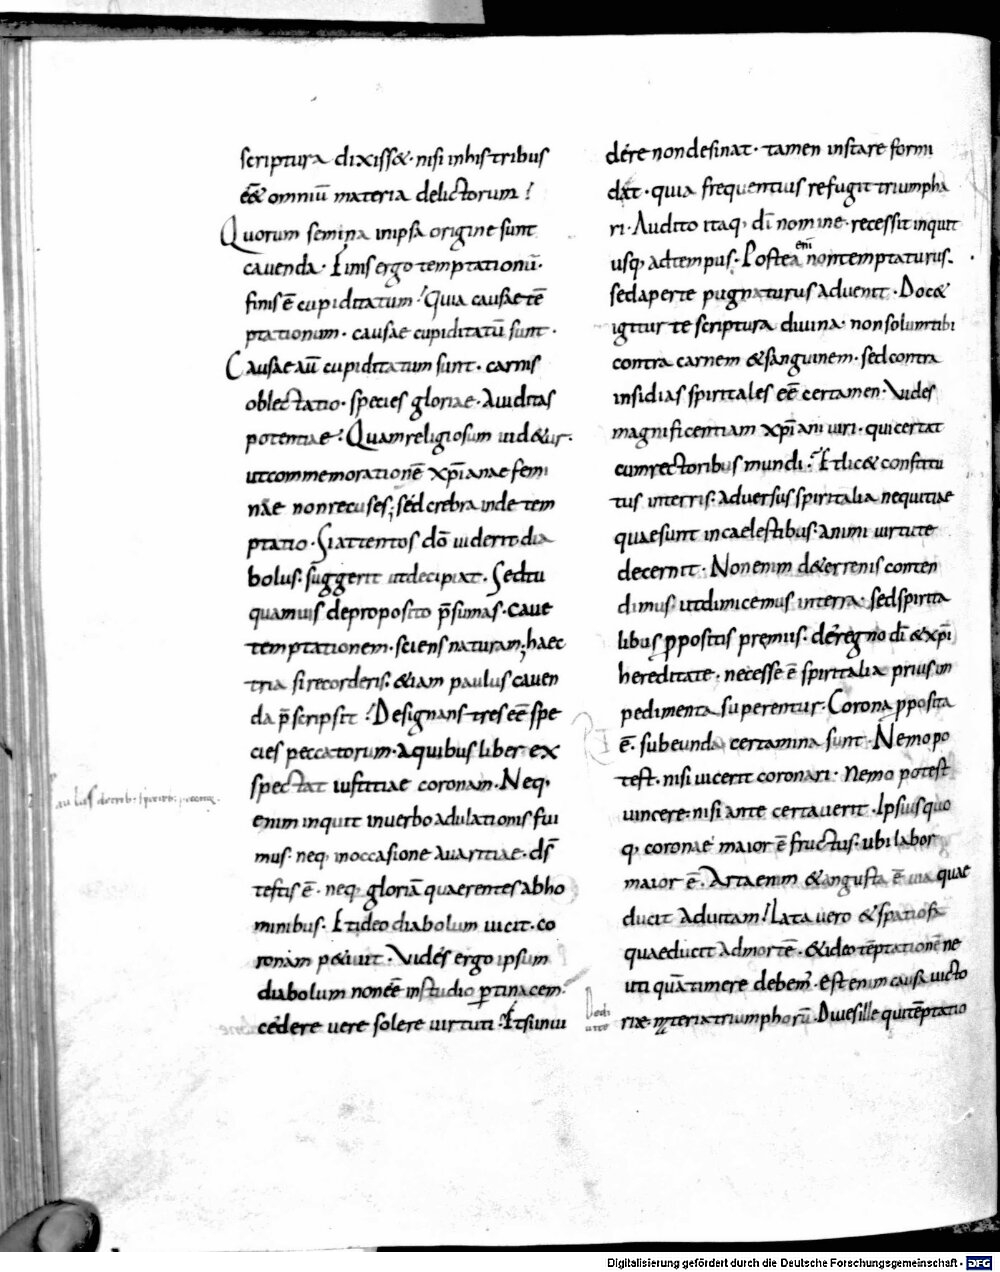 scriptura dixiss&· nisi inhis tribus
ēē& omniū materia delictorum!
Quorum semina inipsa origine sunt
cauenda· Finis ergo temptationū·
finis ē cupiditatum! Quia causae tē
ptationum· causae cupiditatū sunt·
Causae aū cupiditatum sunt· carnis
oblectatio· species gloriae· auiditas
potentiae! Quam religiosum uid&ur·
ut commemorationē xp̄ianae femi
nāe non recuses; sed crebra inde tem
ptatio· Si attentos dō uiderit dia
bolus: suggerit ut decipiat· Sed tu
quamuis de proposito p̄sumas· caue
temptationem· sciens naturam; haec
tria si recorderis: &iam paulus cauen
da p̄scripsit! Designans tres eē spe
cies peccatorum· a quibus liber ex
spectat iustitiae coronam· Neq,
enim inquit in uerbo adulationis fui
mus· neq, in occasione auaritiae· ds̄
testis ē· neq, gloriā quaerentes ab ho
minibus· Et ideo diabolum uicit· co
ronam p&iuit· Vides ergo ipsum
diabolum non eē in studio ꝑtinacem·
cedere uere solere uirtuti· Et si inui
dere non desinat· tamen instare formi
dat· quia frequentius refugit triumpha
ri· Audito itaq, dī nomine· recessit inquit
usq, ad tempus· Postea enī non temptaturus·
sed aperte pugnaturus aduenit· Doc&
igitur te scriptura diuina· non solum tibi
contra carnem & sanguinem· sed contra
insidias spiritales eē certamen· Vides
magnificentiam xp̄iani uiri· qui certat
cum rectoribus mundi· Et lic& constitu
tus in terris: aduersus spiritalia nequitiae
quae sunt in caelestibus: animi uirtute
decernit· Non enim d& errenis conten
dimus· ut dimicemus in terra· sed spirita
libus ꝓpositis pręmiis: de regno dī & xp̄i
hereditate· necesse ē spiritalia prius im
pedimenta superentur· Corona ꝓposita
ē· subeunda certamina sunt· Nemo po
test· nisi uicerit coronari· Nemo potest
uincere· nisi ante certauerit· Ipsius quo
q, coronae maior ē fructus: ubi labor
maior ē· Arta enim & angusta ē uia quae
ducit ad uitam! Lata uero & spatiosa
quae ducit ad mortē· & ideo tēptationē ne
uti quā timere debem̄· est enim causa uicto
riae· materia triumphorū· Diues ille qui tēptatio